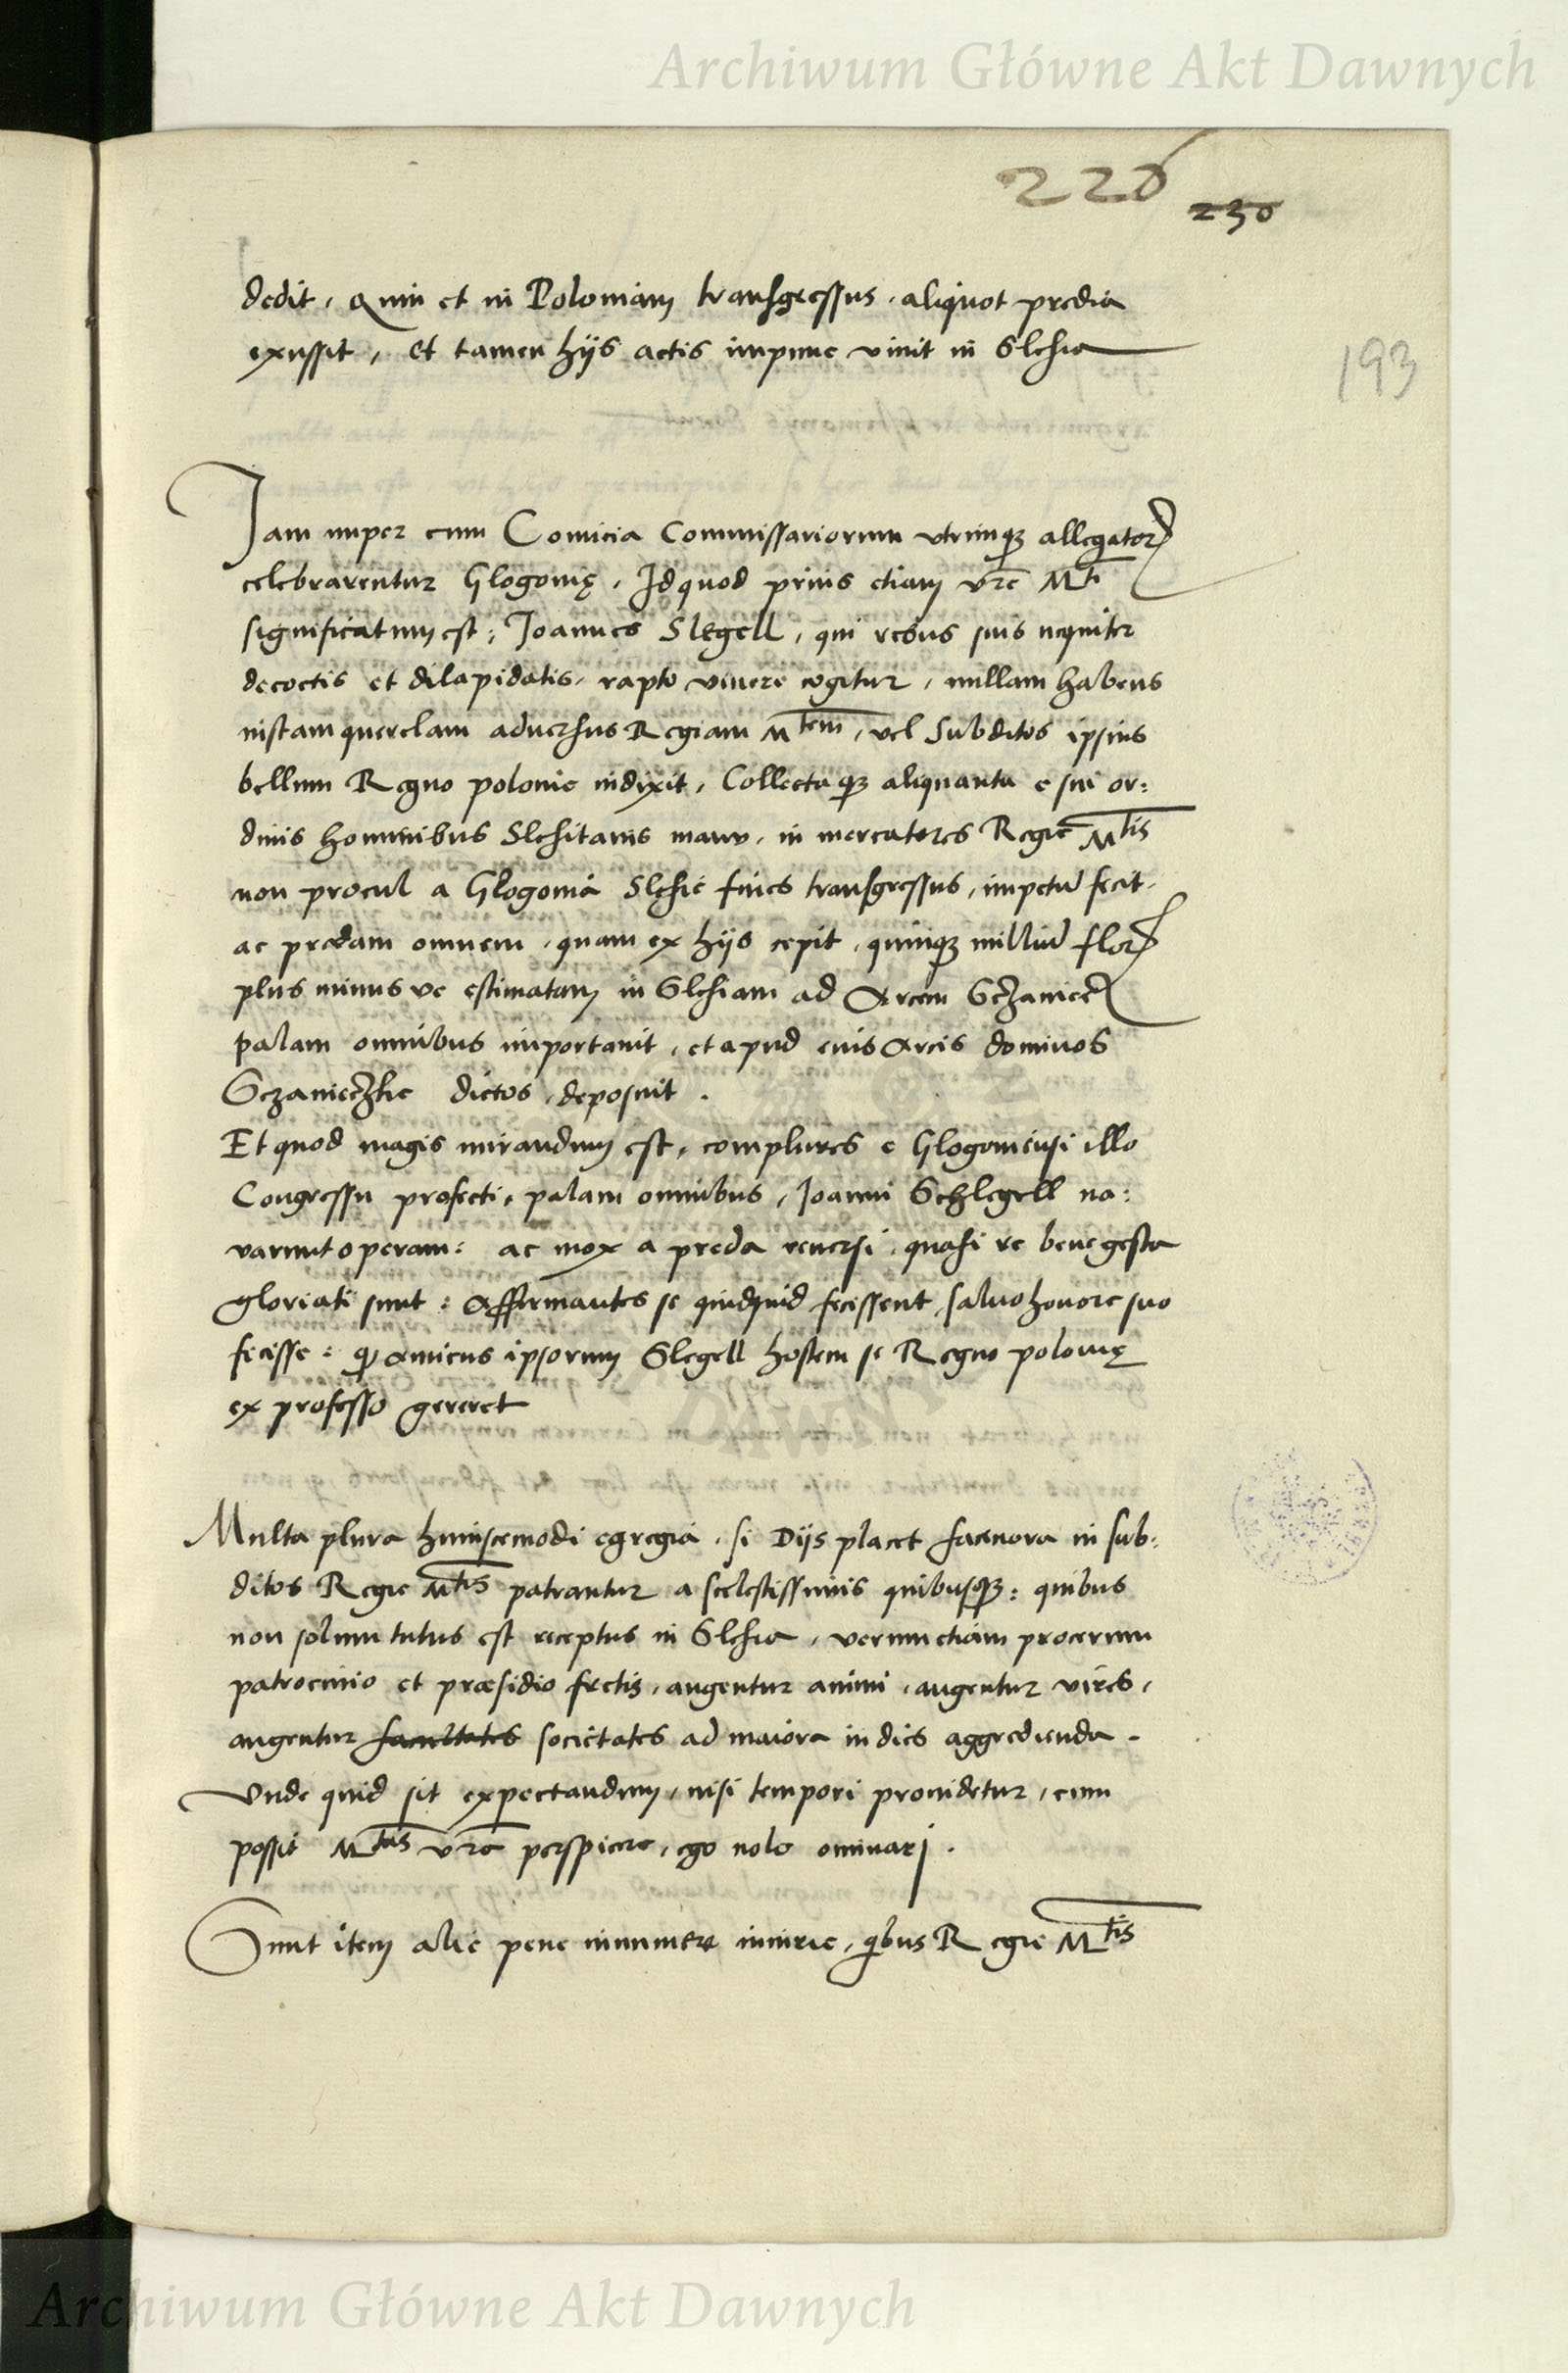 Archiwum Główne Akt Dawnych
226
230
193
dedit, Quin et in Poloniam transgressus, aliquot predia
exussit, Et tamen hijs actis impune vivit in Slesia
Jam nuper cum Comicia Commissariorum vtrimqꝫ allegatorꝝ
celebrarentur Glogovię, Id quod prius etiam vr̄e Mti
significatum est: Joannes Slegell, qui rebus suis nequiter
decoctis et dilapidatis, rapto vivere cogitur, nullam habens
iustam querelam adversus Regiam Mtem, vel Subditos ipsius
bellum Regno polonie indixit, Collectaqꝫ aliquanta e sui or:
dinis hominibus Slesitanis manu, in mercatores Regie Mtis
non procul a Glogovia Slesie fines transgressus, impetū fecit,
ac predam omnem, quam ex hijs cepit, quinqꝫ milliū florꝝ
plus minus ve estimatam in Slesiam ad Arcem Sczaniecꝝ
palam omnibus importavit, et apud eius Arcis dominos
Sczanieczke dictos, deposuit.
Et quod magis mirandum est, complures e Glogoviensi illo
Congressu profecti, palam omnibus, Joanni Schlegell na:
varunt operam: ac mox a preda reversi, quasi re bene gesta
gloriati sunt: Affirmantes se quidquid fecissent salvo honore suo
fecisse: qꝫ Amicus ipsorum Slegell hostem se Regno polonię
ex professo gereret
Multa plura huiuscemodi egregia, si Dijs placet facinora in sub:
ditos Regie Mtis patrantur a scelestissimis quibusqꝫ: quibus
non solum tutus est receptus in Slesia, verum etiam procerum
patrocinio et præsidio fretis, augentur animi, augentur vires,
augentur facultates societates ad maiora in dies aggredienda.
Unde quid sit expectandum, nisi tempori providetur, cum
possit Mtas vr̄a perspicere, ego nolo ominarj.
Sunt item alie pene innumere iniurie, qibus Regie Mtis
Archiwum Główne Akt Dawnych